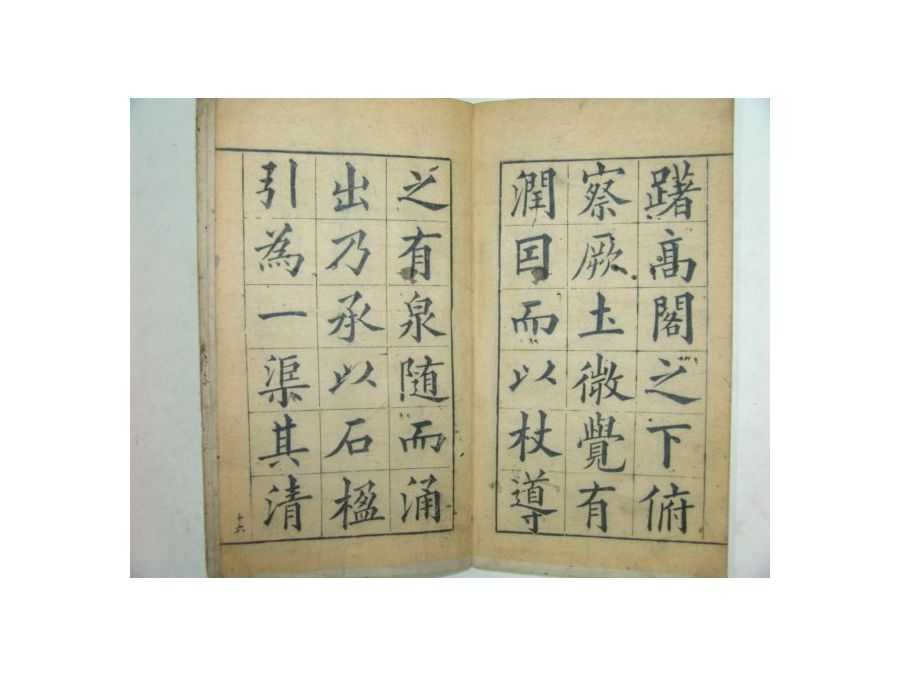 躇髙閣之下俯
察厥土微覺有
潤因而以杖導
之有泉随而涌
出乃承以石楹
引為一渠其清
十六